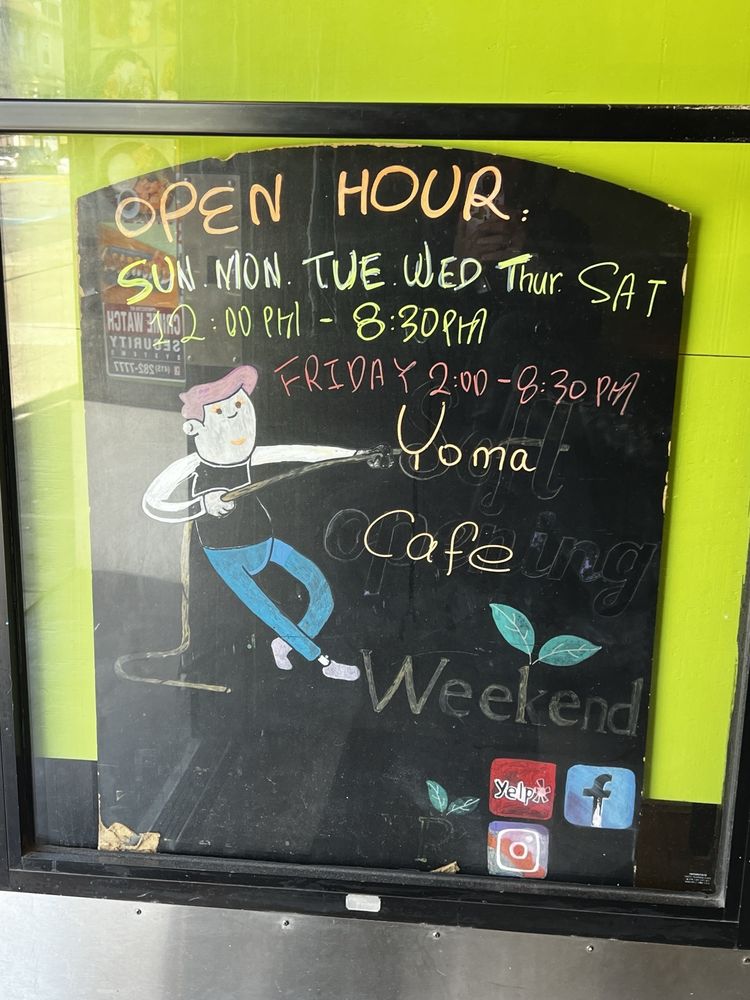 OPEN HOUR:
SUN. MON. TUE. WED. Thur. SAT
12:00 PM - 8:30PM
FRIDAY 2:00 - 8:30 PM
Yoma
Soft
Cafe
opening
Weekend
Yelp
f
CRIME WATCH
SECURITY
SYSTEMS
(415)282-7777